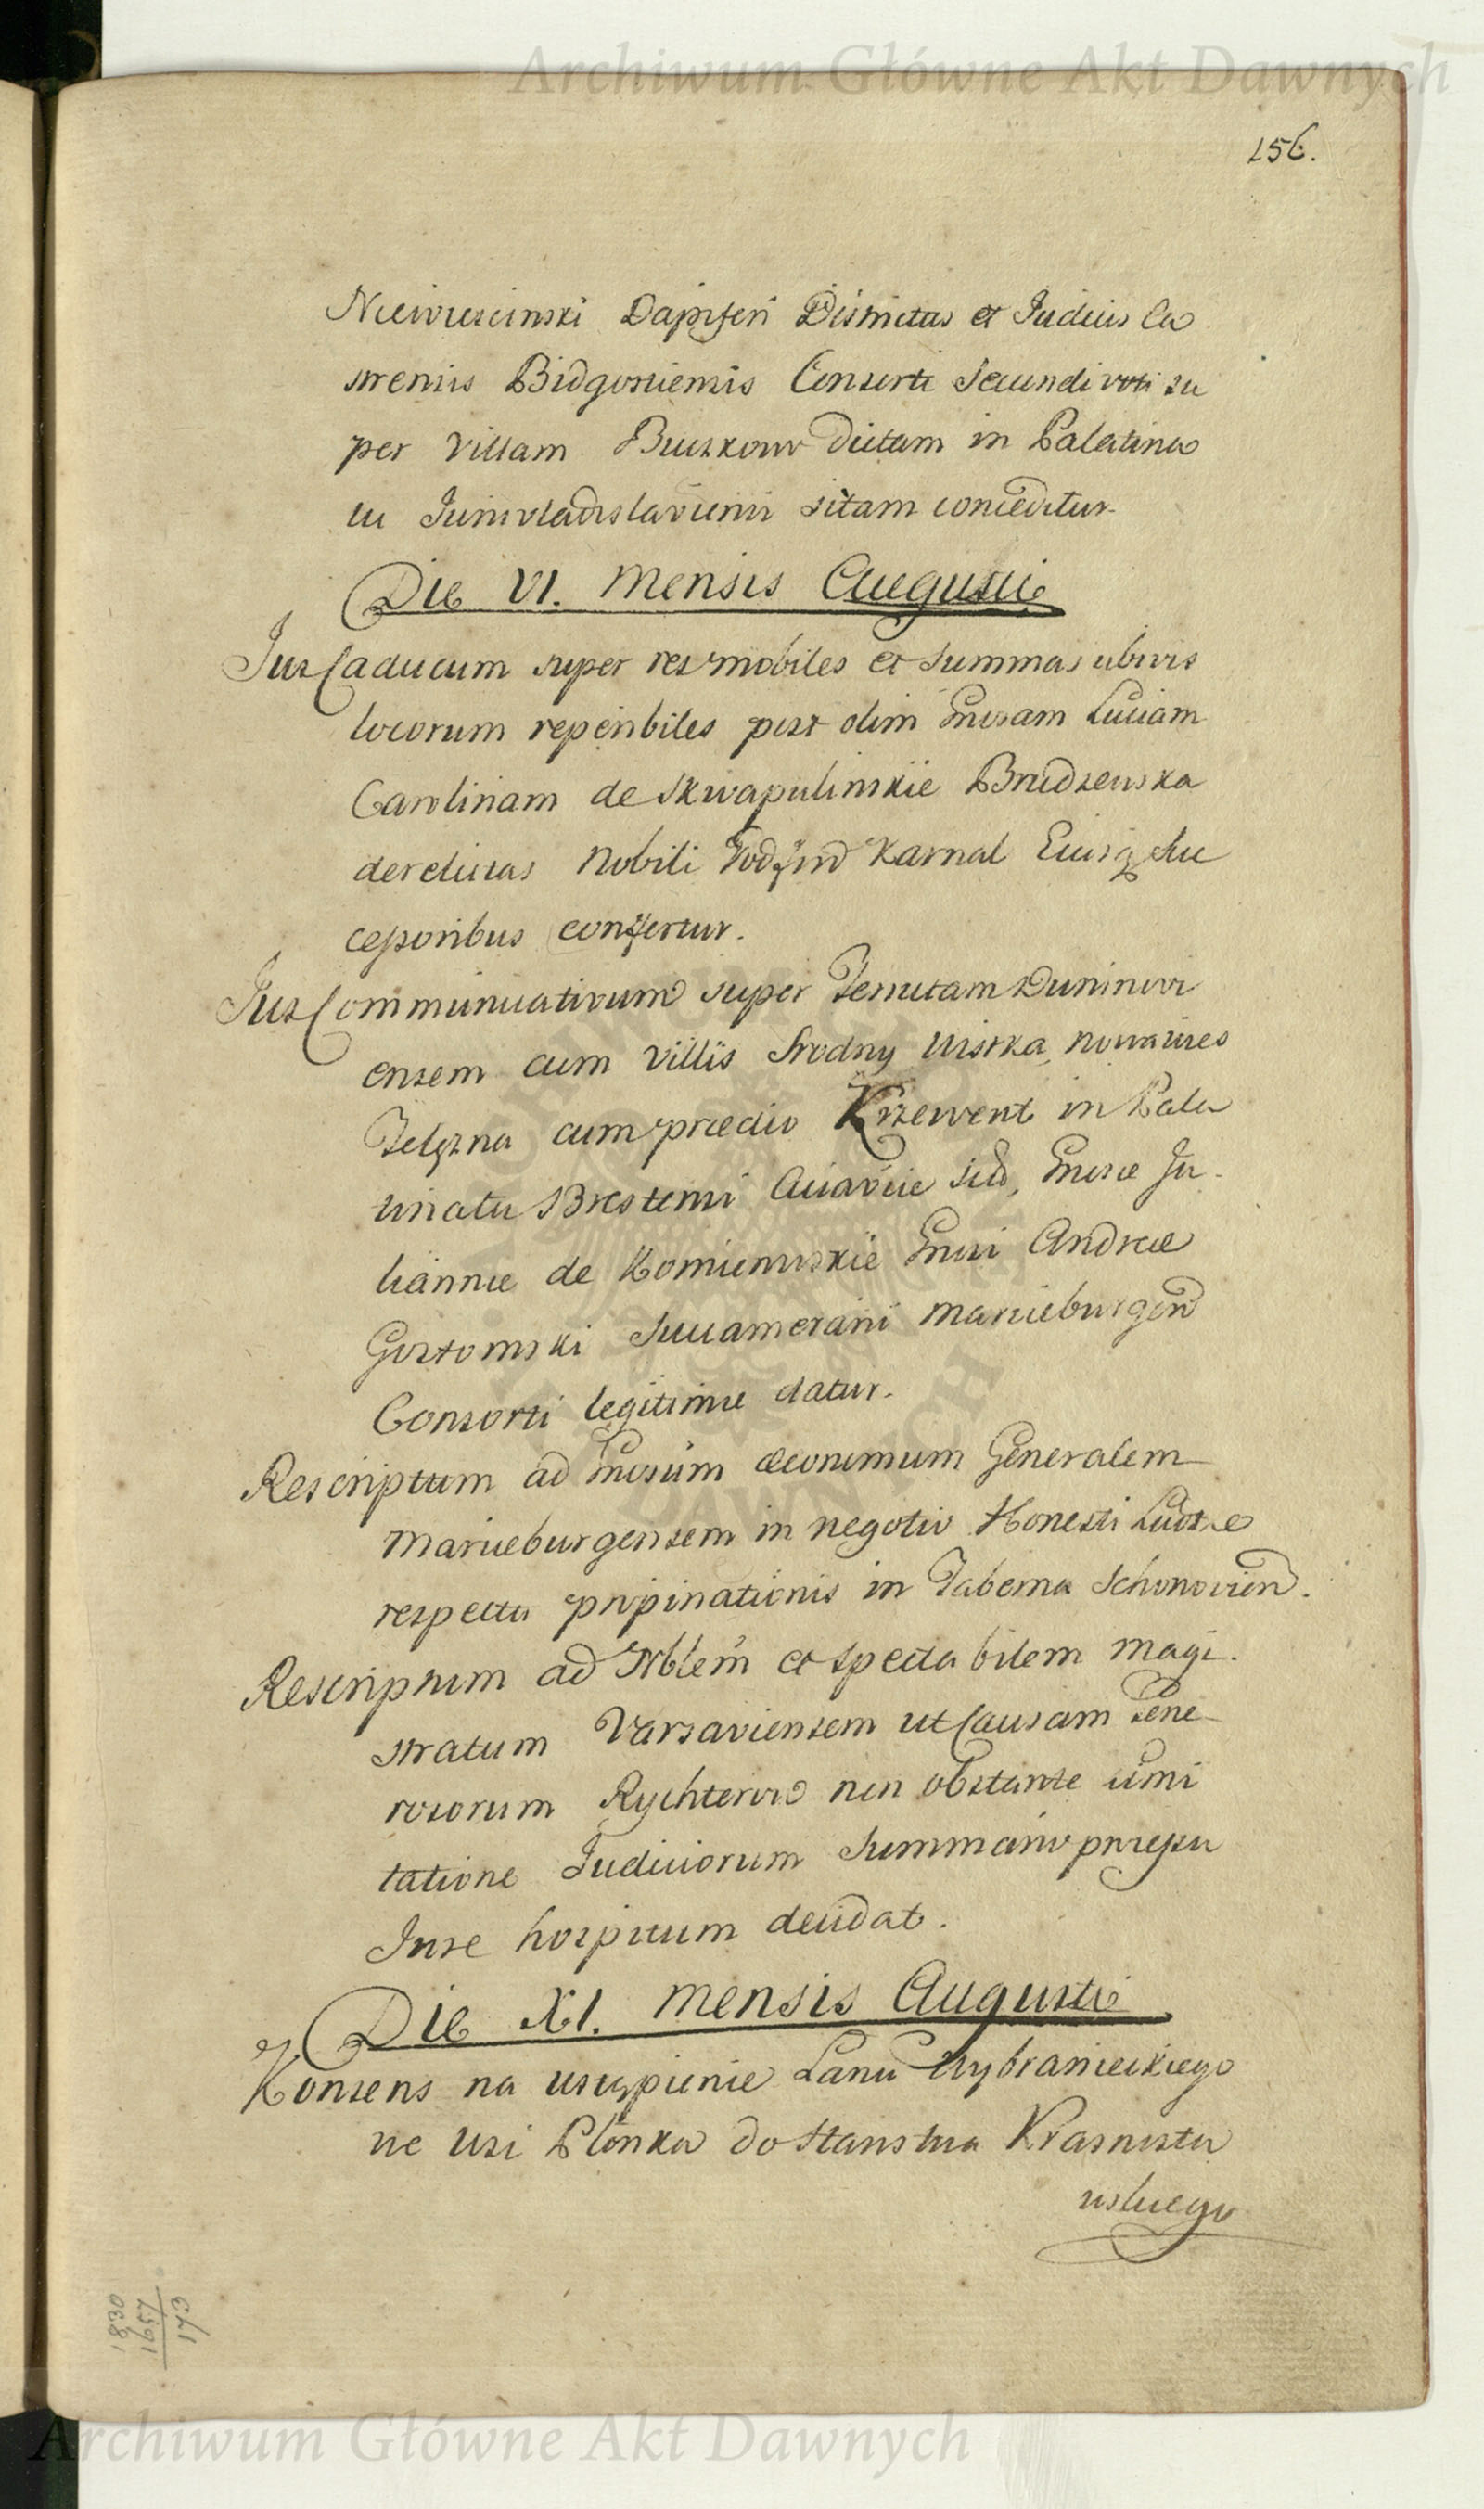 Archiwum Główne Akt Dawnych
156.
Niewiescinski Dapiferi Districtus et Iudicis Ca
strensis Bidgostiensis Consorti Secundi voti su
per Villam Bruskow dictam in Palatina
tu Iunivladislaviensi sitam conceditur.
Die VI. Mensis Augusti
Jus Caducum super res mobiles et Summas ubivis
locorum reperibiles post olim Gnosam Luciam
Carolinam de Skwapulinskie Brudzenska
derelictas Nobili Karnal Eiusq; Suc
cessoribus confertur.
Jus Communicativum super Tenutam Duninovi
ensem cum Villis Srodny Wistka, Nowawies
Telązna cum prædio Krzewent in Pala
tinatu Brestensi Cuiaviæ sit. Gnosæ Ju
liannæ de Komierowskie Gnosi Andreæ
Gostomski Succamerarii Marieburgen
Consorti legitimæ datur.
Rescriptum ad Gnosum œconomum Generalem
Marieburgensem in negotio Honesti
respectu propinationis in Taberna Schonovien.
Rescriptum ad Nblem et Spectabilem Magi
stratum Varsaviensem ut Causam Gene
rosorum Rychterow non obstante limi
tatione Iudiciorum Summario processu
Jure hospitum decidat.
Die XI. Mensis Augusti
Konsens na ustąpienie Łanu Wybranieckiego
we Wsi Płonka do Starostwa Krasnosta
wskiego
1830
1657
173
ARCHIWUM GŁÓWNE AKT DAWNYCH
Archiwum Główne Akt Dawnych